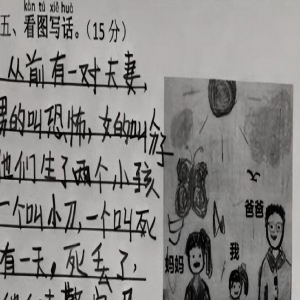 kàn tú xiě huà
五、看图写话。(15分)
从前有一对夫妻,
男的叫恐怖,女的叫分子
他们生了两个小孩
一个叫小刀,一个叫死
有一天,死丢了,
爸爸
妈妈
我